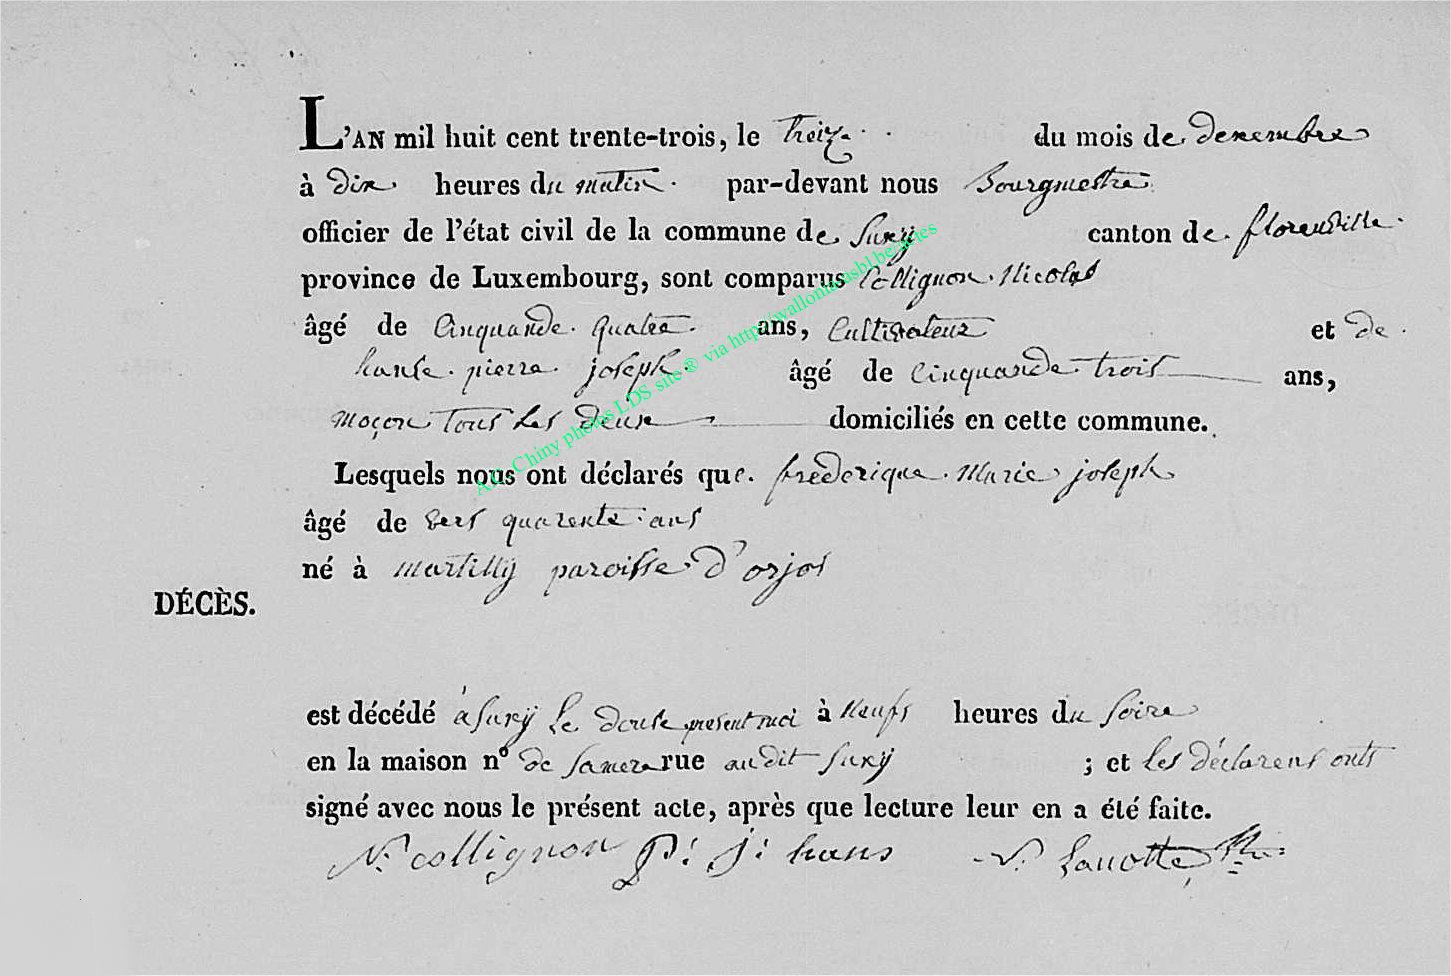 L'AN mil huit cent trente-trois, le treize du mois de decembre
à dix heures du matin par-devant nous Bourgmestre
officier de l'état civil de la commune de Suxÿ canton de florenville
province de Luxembourg, sont comparus Collignon Nicolas
âgé de Cinquande quatre ans, Cultivateur et de
hanse pierre joseph âgé de Cinquande trois ans,
moçon tous les deux domiciliés en cette commune.
Lesquels nous ont déclarés que frederique Marie joseph
âgé de vers quarente ans
né à martillÿ paroisse d'orjos
DÉCÈS.
est décédé à Suxÿ le douse present moi à neufs heures du soire
en la maison n° de samere rue audit Suxÿ ; et les déclarens onts
signé avec nous le présent acte, après que lecture leur en a été faite.
N. collignon P: j: hans Lanotte
A.C. Chiny photos LDS site ® via http://wallonia.asbl.be/actes